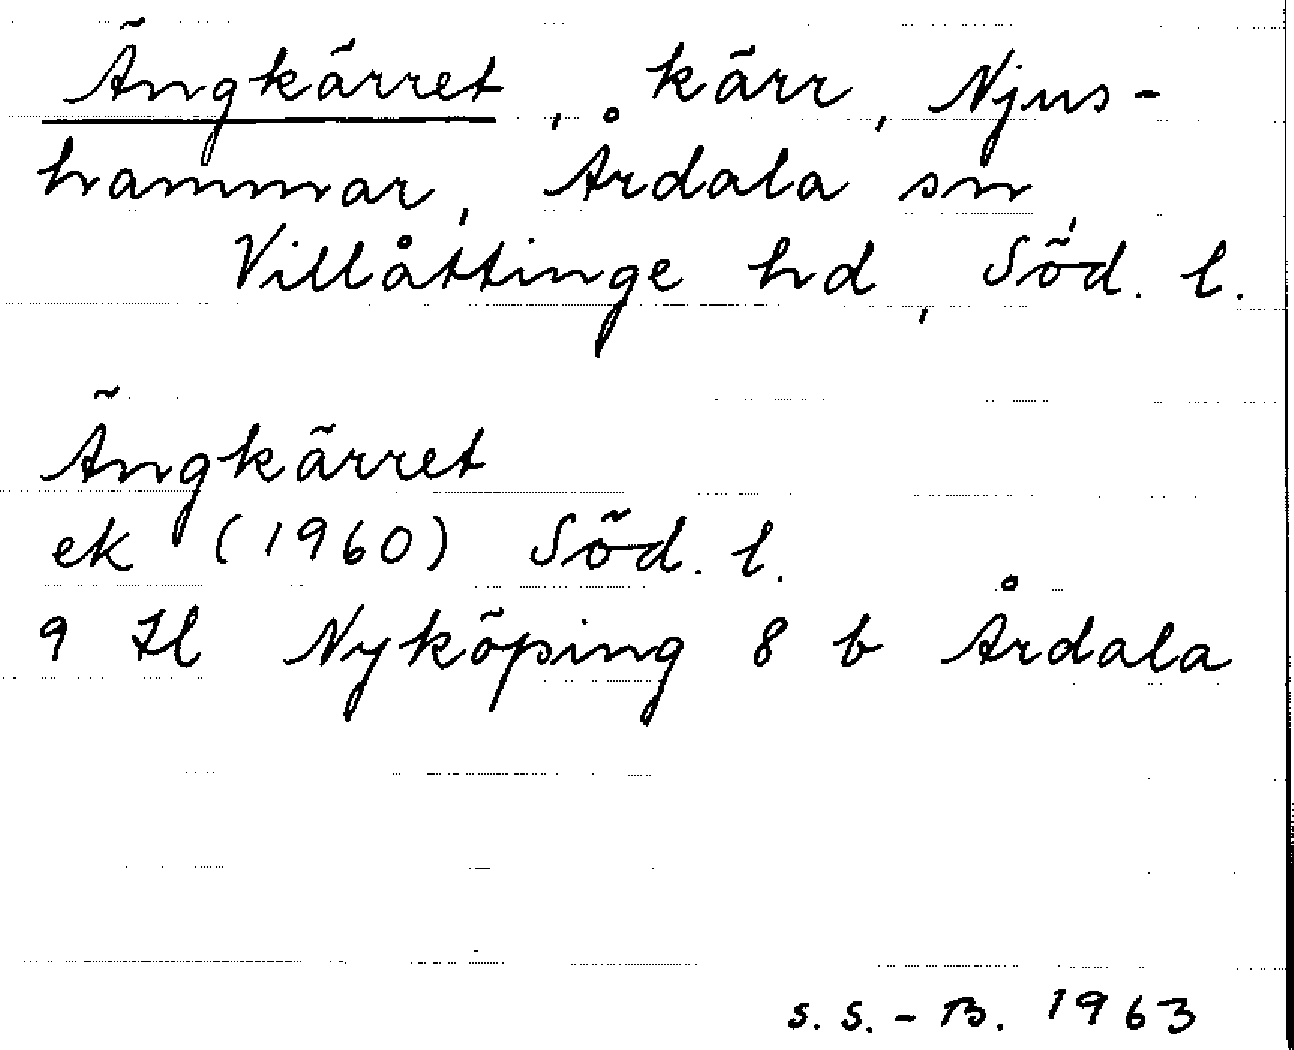 Ängkärret, kärr, Njus-
hammar, Årdala sn,
Villåttinge hd, Söd. l.
Ängkärret
ek (1960) Söd. l.
9 H Nyköping 8 b Årdala
S. S. - B. 1963